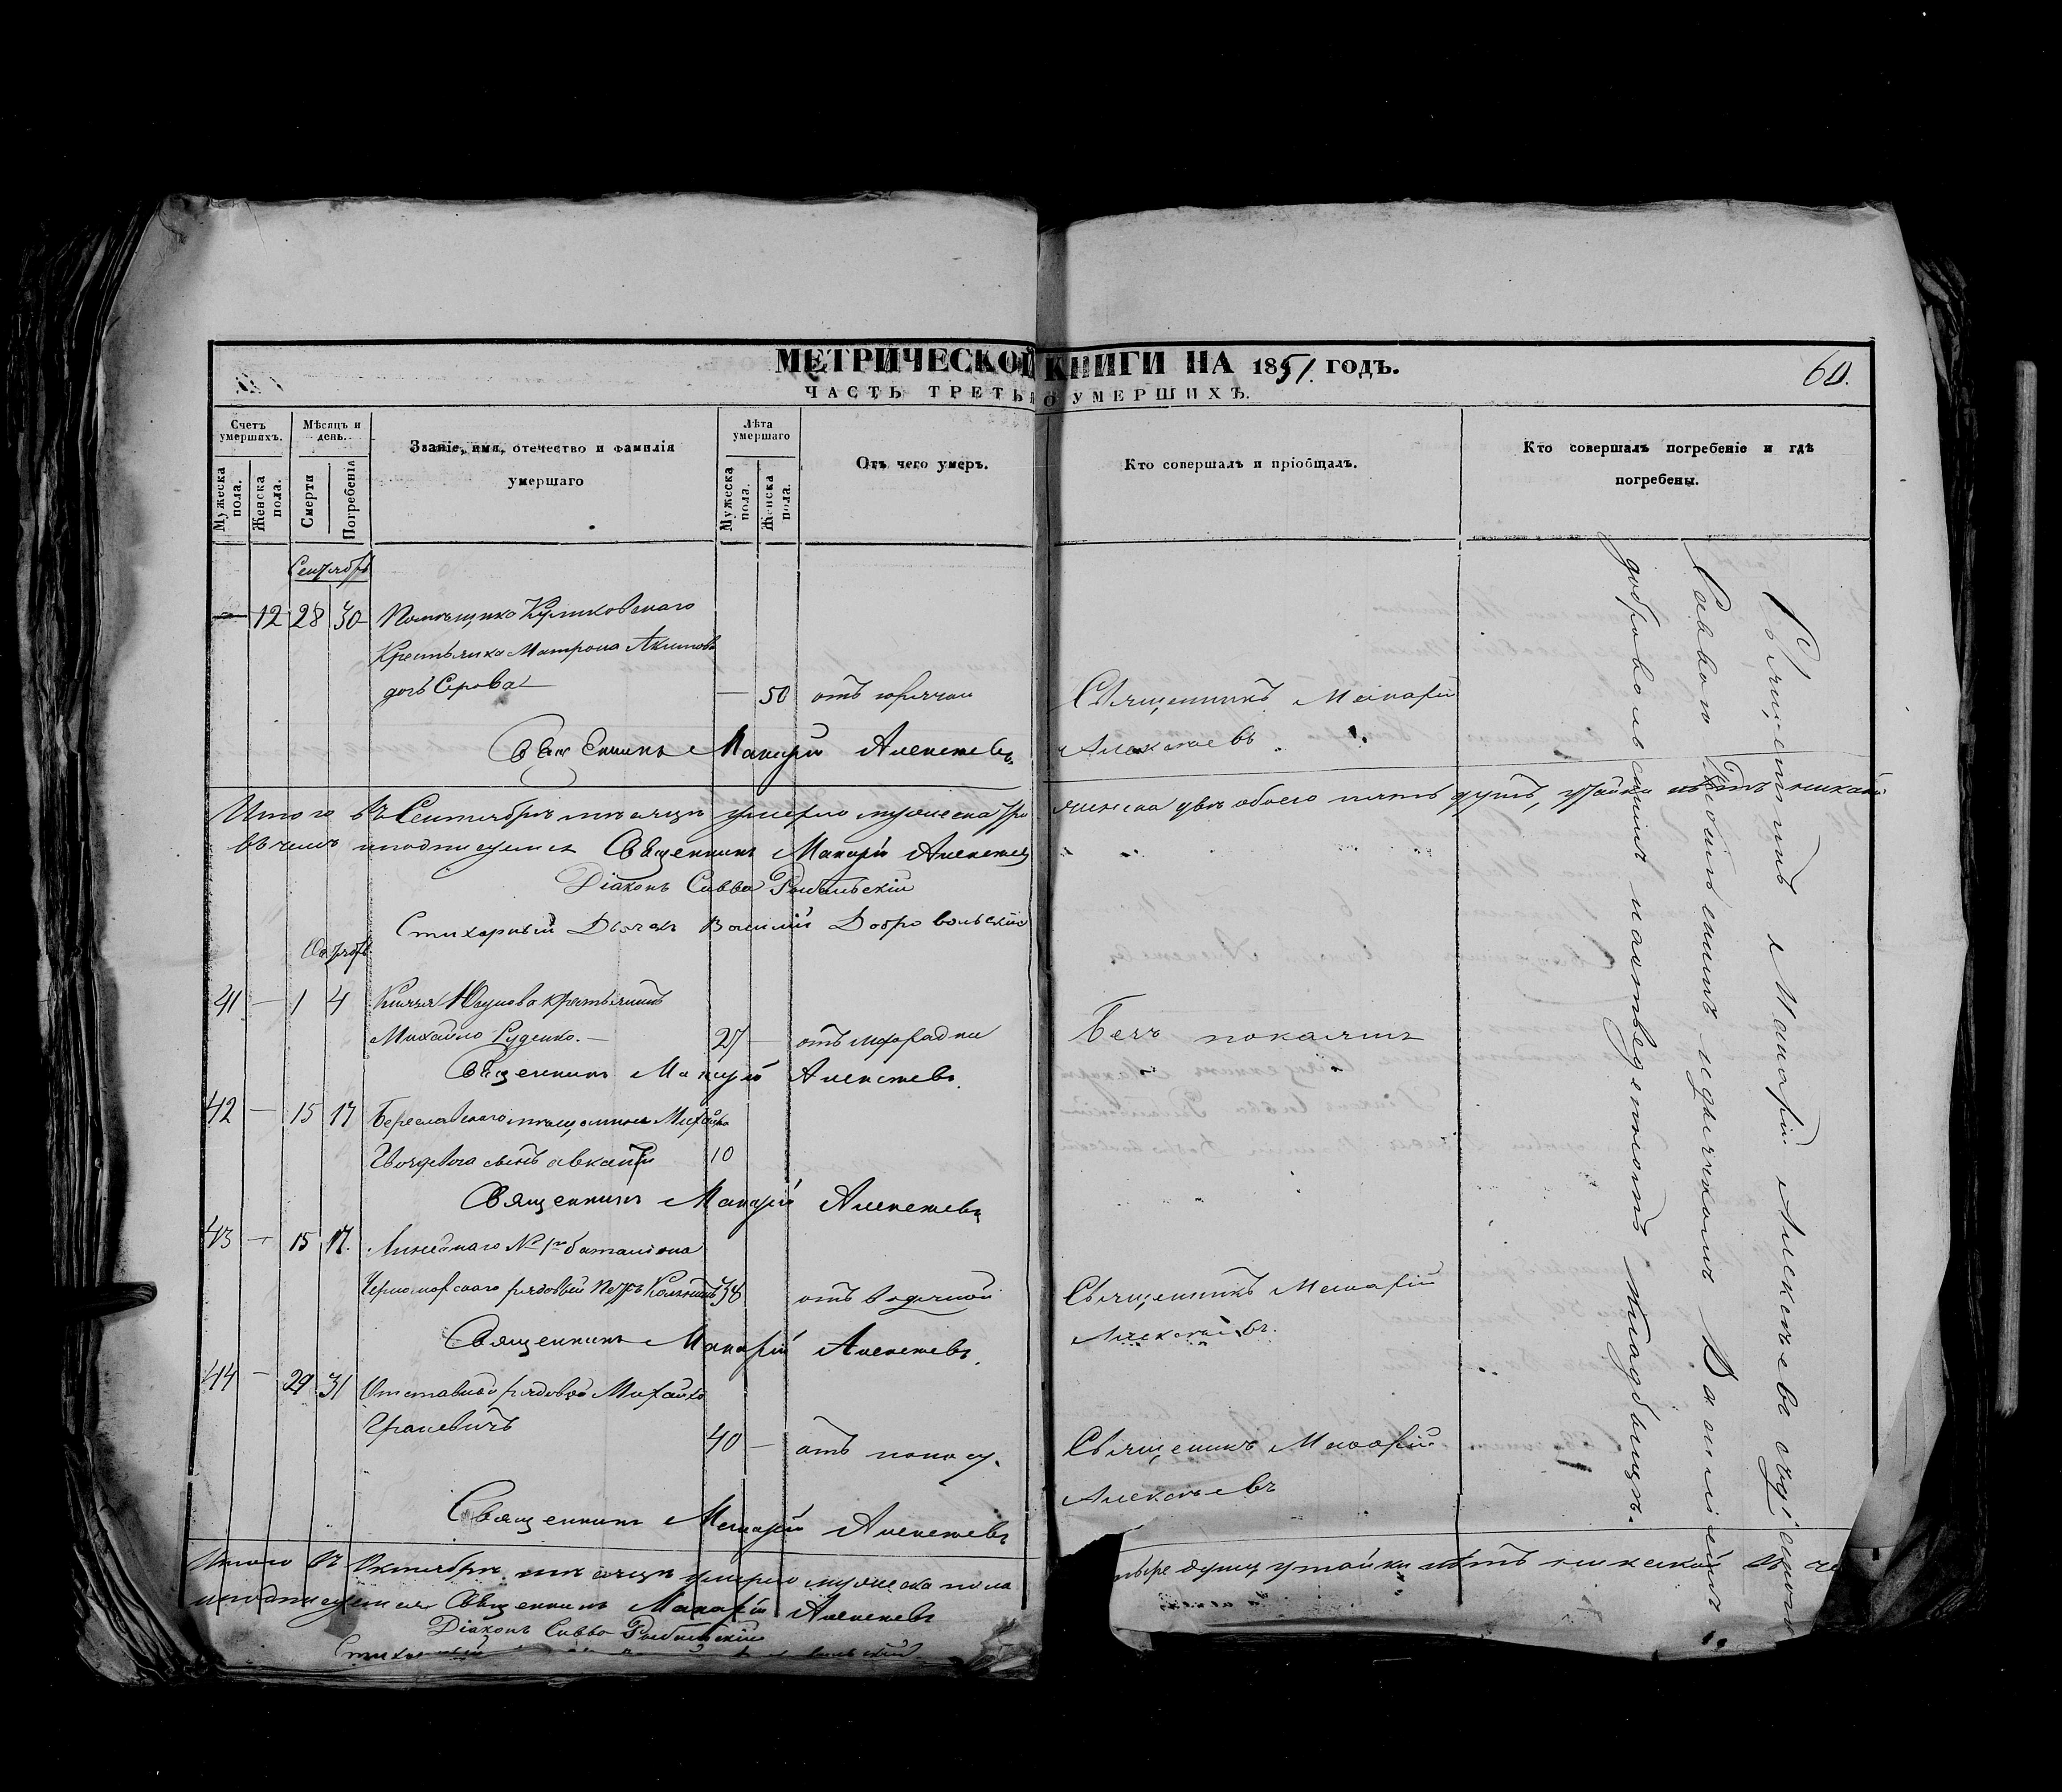 МЕТРИЧЕСКОЙ КНИГИ НА 1851. ГОДЪ.
60.
ЧАСТЬ ТРЕТЬЯ О УМЕРШИХЪ.
Счетъ умершихъ.
Мужеска пола.
Женска пола.
Мѣсяцъ и день.
Смерти
Погребенія
Званіе, имя, отечество и фамилія
умершаго
Лѣта умершаго
Мужеска пола.
Женска пола.
Отъ чего умеръ.
Кто совершалъ и пріобщалъ.
Кто совершалъ погребеніе и гдѣ
погребены.
— 12 28 30 Помѣщика Куликовскаго
Крестьянка Матрона Акимова
дочь Серова — 50 отъ горячки Священникъ Макарій
Алексѣевъ.
Священникъ Макарій Алексѣевъ.
Итого въ Сентябрѣ мѣсяцѣ умерло мужеска три женска двѣ обоего пять душъ, утайки нѣтъ никакой
въ чемъ и подписуемся Священникъ Макарій Алексѣевъ
Діаконъ Савва Рыбальскій
Стихарный Дьячекъ Василій Добровольскій
41 — 1 4 Князя крестьянинъ
Михайло Руденко. — 27 — отъ Безъ покаянія
Священникъ Макарій Алексѣевъ.
42 — 15 17 Бериславскаго мѣщанина
сынъ 10
Священникъ Макарій Алексѣевъ
43 — 15 17. Линейнаго № 1го баталіона
Черноморскаго рядовой Петръ 38 отъ водяной Священникъ Макарій
Алексѣевъ.
Священникъ Макарій Алексѣевъ.
44 — 29 31 Отставной рядовой Михайло
40 — отъ поносу. Священникъ Макарій
Алексѣевъ
Священникъ Макарій Алексѣевъ
Итого въ Октябрѣ мѣсяцѣ умерло мужеска пола душъ утайки нѣтъ никакой въ че
и подписуемся Священникъ Макарій Алексѣевъ
Діаконъ Савва Рыбальскій
Священникъ Макарій Алексѣевъ
Саввою Рыбальскимъ и дьячкомъ Василіемъ
Добровольскимъ кладбищѣ.